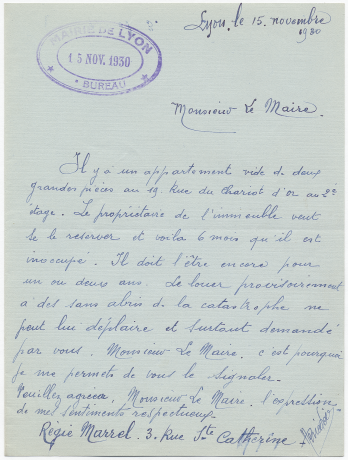 Lyon, le 15 novembre
1930
MAIRIE DE LYON
15 NOV. 1930
BUREAU
Monsieur Le Maire.
Il y a un appartement vide de deux
grandes pièces au 19 rue du Chariot d'or au 2e
étage. Le propriétaire de l'immeuble veut
se le reserver et voila 6 mois qu'il est
inoccupé. Il doit l'être encore pour
un ou deux ans. Le louer provisoirement
à des sans abris de la catastrophe ne
peut lui déplaire et surtout demandé
par vous. Monsieur Le Maire. c'est pourquoi
je me permets de vous le signaler.
Veuillez agréer, Monsieur Le Maire, l'expression
de mes sentiments respectueux.
Régie Marrel. 3. Rue Ste Catherine.